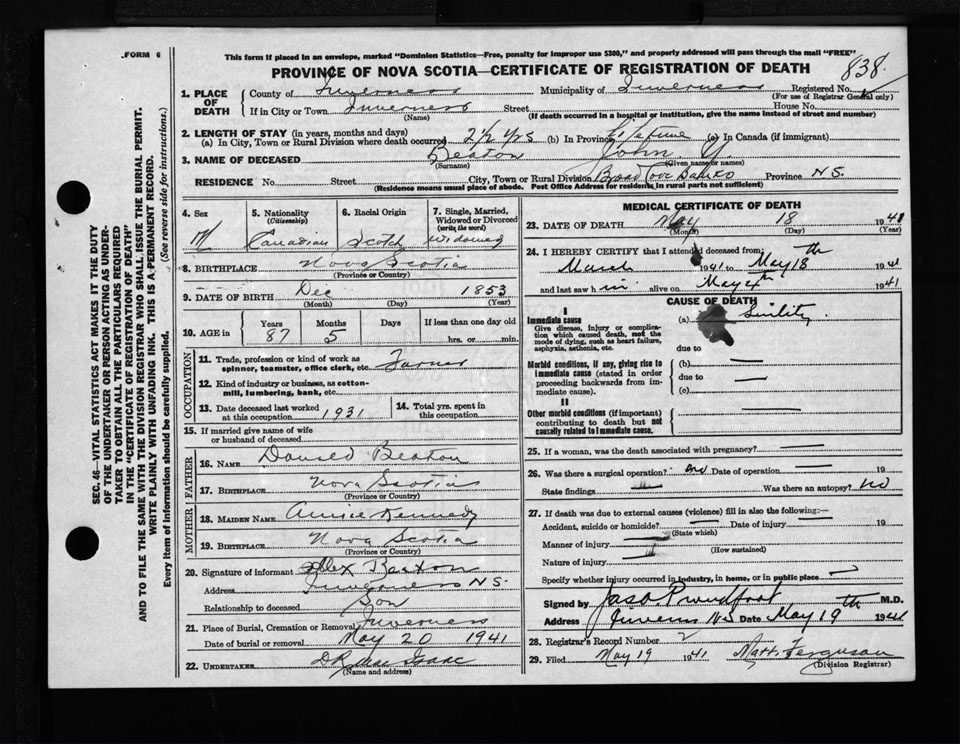 FORM 6
This form if placed in an envelope, marked "Dominion Statistics—Free, penalty for improper use $300," and properly addressed will pass through the mail "FREE"
PROVINCE OF NOVA SCOTIA—CERTIFICATE OF REGISTRATION OF DEATH
838
SEC. 46—VITAL STATISTICS ACT MAKES IT THE DUTY
OF THE UNDERTAKER OR PERSON ACTING AS UNDER-
TAKER TO OBTAIN ALL THE PARTICULARS REQUIRED
IN THE "CERTIFICATE OF REGISTRATION OF DEATH"
AND TO FILE THE SAME WITH THE DIVISION REGISTRAR WHO SHALL ISSUE THE BURIAL PERMIT.
WRITE PLAINLY WITH UNFADING INK. THIS IS A PERMANENT RECORD.
Every item of information should be carefully supplied. (See reverse side for instructions.)
1. PLACE OF DEATH
County of Inverness Municipality of Inverness Registered No.
(For use of Registrar General only)
If in City or Town Inverness Street House No.
(Name) (If death occurred in a hospital or institution, give the name instead of street and number)
2. LENGTH OF STAY (in years, months and days)
(a) In City, Town or Rural Division where death occurred 2½ yrs (b) In Province lifetime (c) In Canada (if immigrant)
3. NAME OF DECEASED Beaton John
(Surname) (Given name or names)
RESIDENCE No. Street City, Town or Rural Division Broad Cove Banks Province N.S.
(Residence means usual place of abode. Post Office Address for residents in rural parts not sufficient)
4. Sex M
5. Nationality (Citizenship) Canadian
6. Racial Origin Scotch
7. Single, Married, Widowed or Divorced (write the word) Widowed
8. BIRTHPLACE Nova Scotia
(Province or Country)
9. DATE OF BIRTH Dec 1853
(Month) (Day) (Year)
10. AGE in Years Months Days If less than one day old
87 5 hrs. or min.
OCCUPATION
11. Trade, profession or kind of work as spinner, teamster, office clerk, etc. Farmer
12. Kind of industry or business, as cotton-mill, lumbering, bank, etc.
13. Date deceased last worked at this occupation 1931
14. Total yrs. spent in this occupation
15. If married give name of wife or husband of deceased
FATHER
16. NAME Donald Beaton
17. BIRTHPLACE Nova Scotia
(Province or Country)
MOTHER
18. MAIDEN NAME Kennedy
19. BIRTHPLACE Nova Scotia
(Province or Country)
20. Signature of informant Alex Beaton
Address Inverness N.S.
Relationship to deceased Son
21. Place of Burial, Cremation or Removal Inverness
Date of burial or removal May 20 1941
22. UNDERTAKER Isaac
(Name and address)
MEDICAL CERTIFICATE OF DEATH
23. DATE OF DEATH May 18 1941
(Month) (Day) (Year)
24. I HEREBY CERTIFY that I attended deceased from:
March 1941 to May 18th 1941
and last saw him alive on May 4th 1941
CAUSE OF DEATH
I
Immediate cause (a) Senility
Give disease, injury or complication which caused death, not the mode of dying, such as heart failure, asphyxia, asthenia, etc.
due to
Morbid conditions, if any, giving rise to immediate cause (stated in order proceeding backwards from immediate cause).
(b)
due to
(c)
II
Other morbid conditions (if important) contributing to death but not causally related to immediate cause.
25. If a woman, was the death associated with pregnancy?
26. Was there a surgical operation? no Date of operation 19
State findings Was there an autopsy? no
27. If death was due to external causes (violence) fill in also the following:—
Accident, suicide or homicide? Date of injury 19
(State which)
Manner of injury
(How sustained)
Nature of injury
Specify whether injury occurred in industry, in home, or in public place
Signed by Jas. Proudfoot M.D.
Address Inverness NS Date May 19th 1941
28. Registrar's Record Number 2
29. Filed May 19 1941 Matt. Ferguson
(Division Registrar)